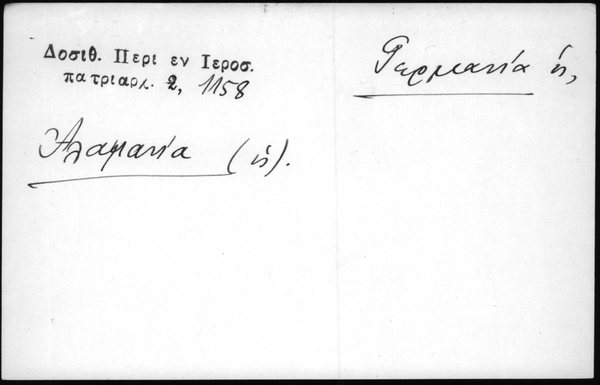 Δοσιθ. Περι εν Ιεροσ.
πατριαρχ. 2, 1158
Γερμανία ἡ,
Ἀλαμανία (ἡ).